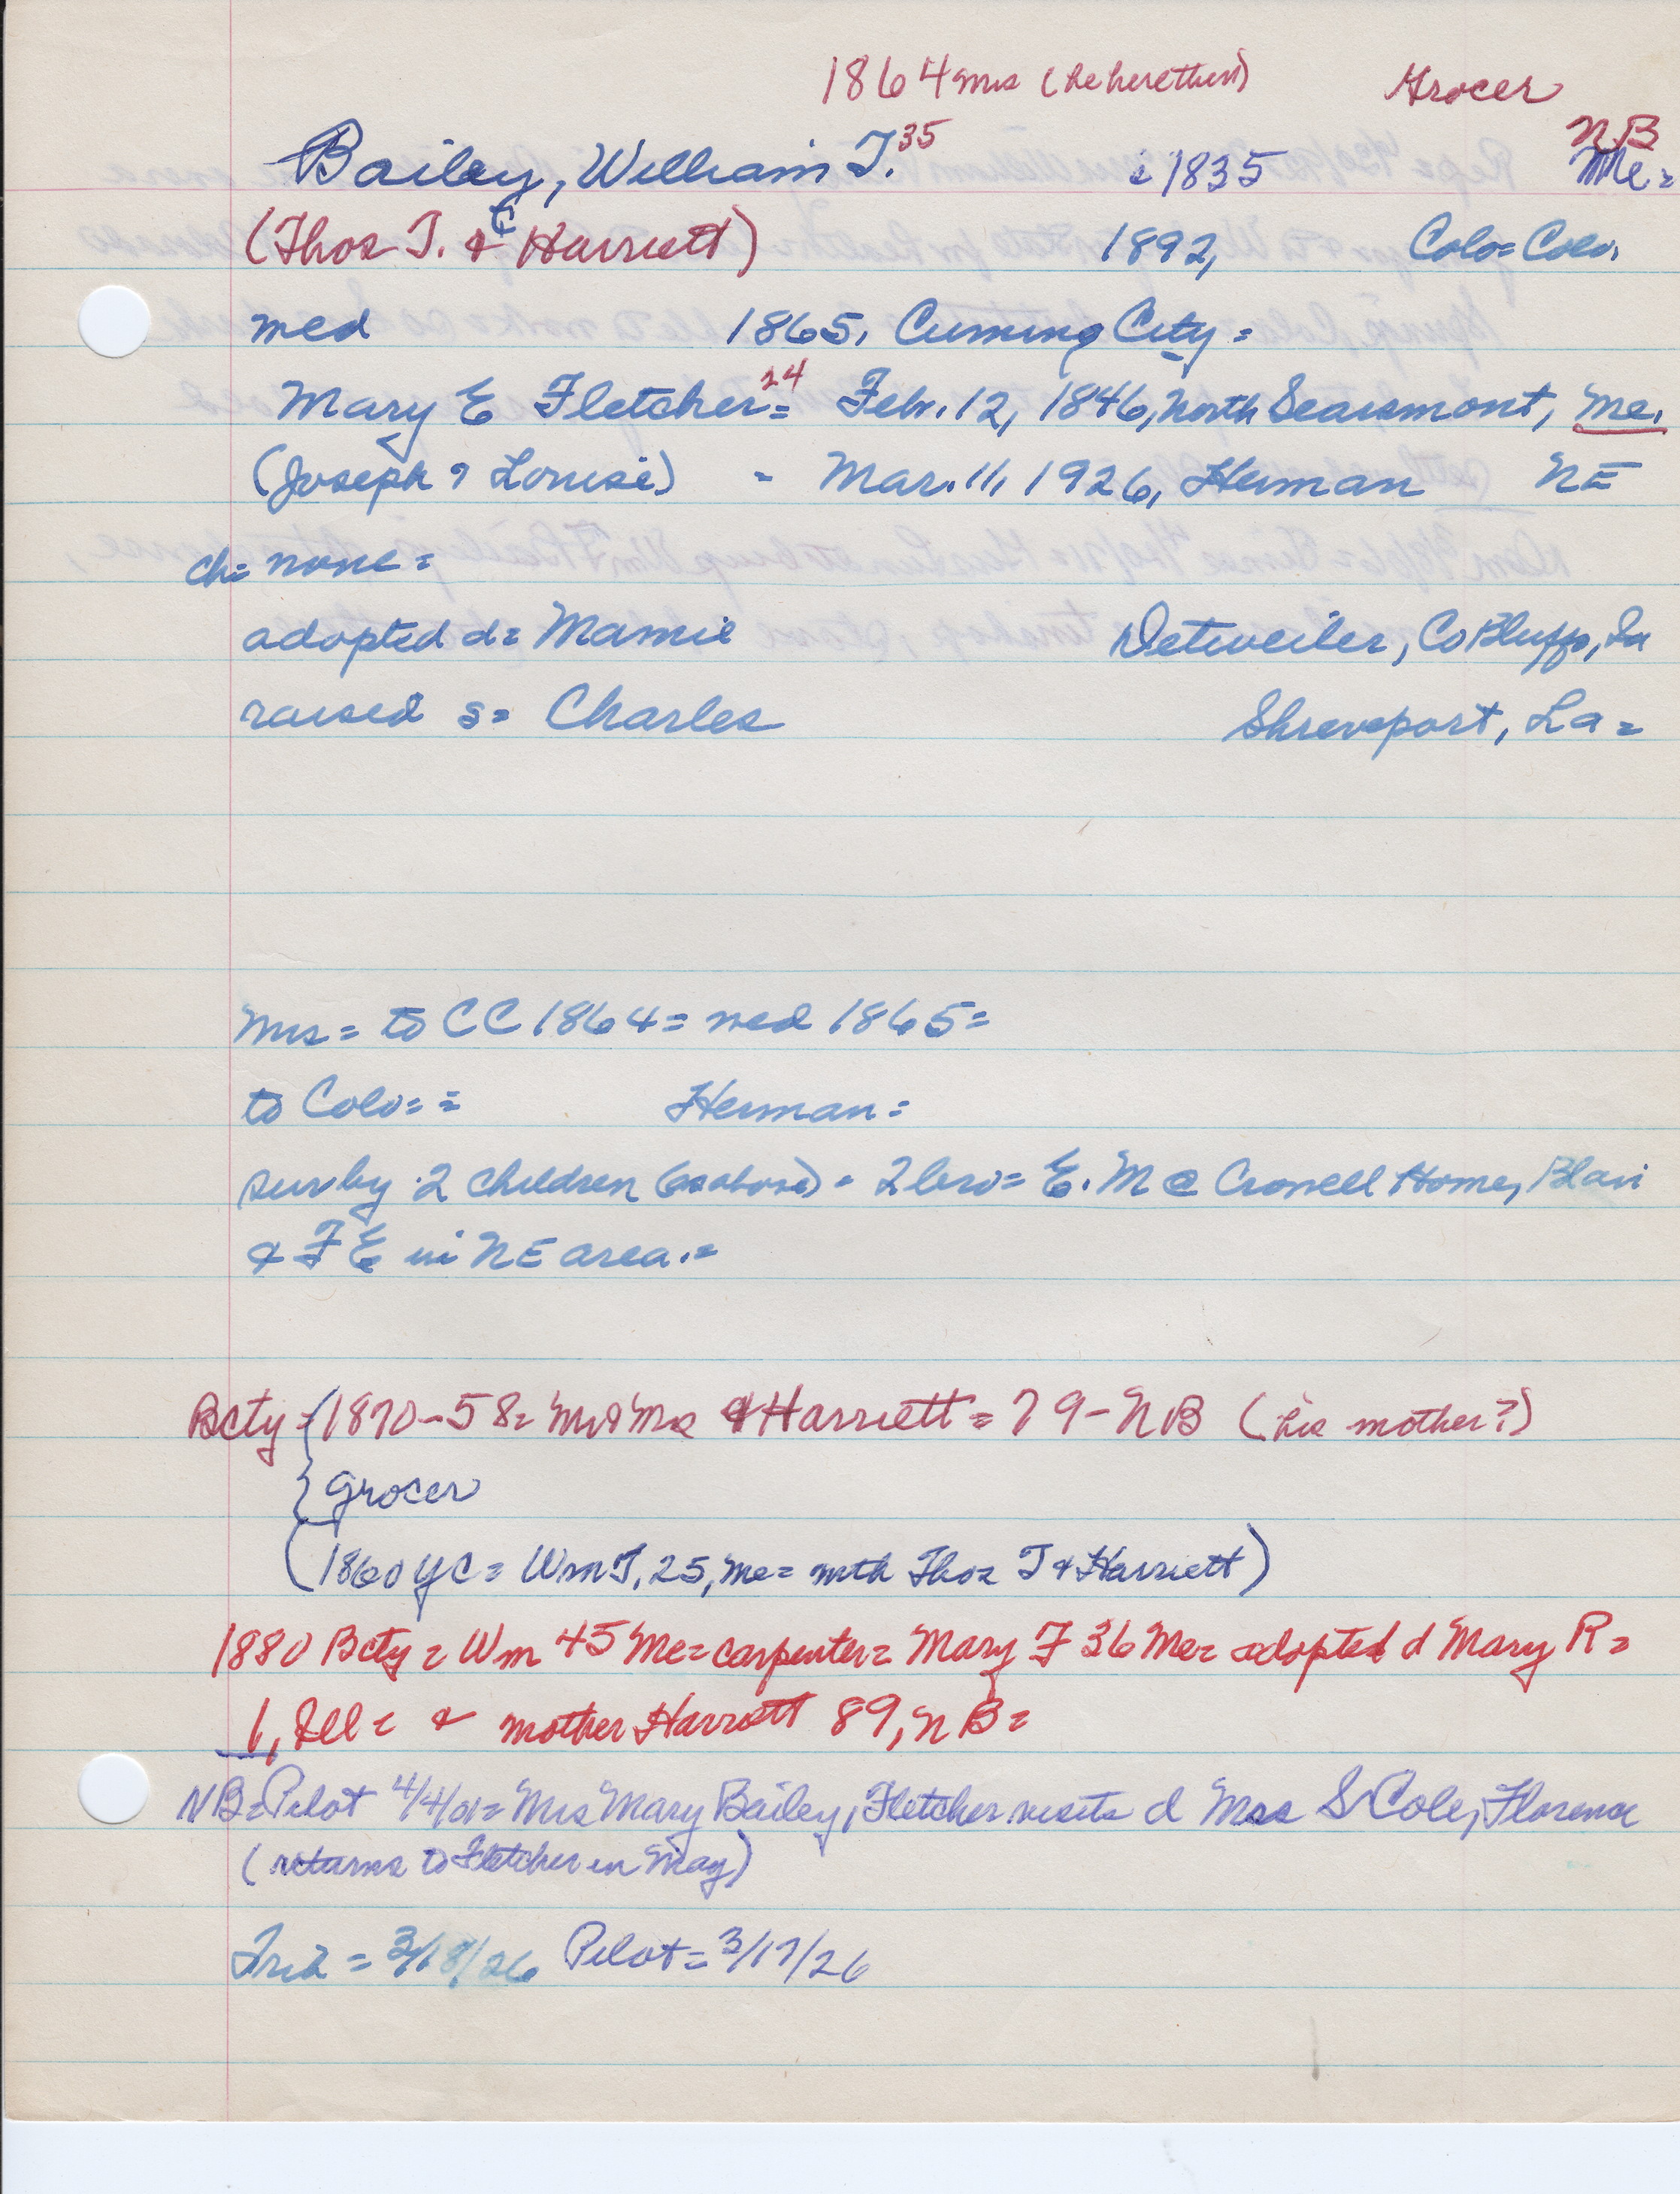 1864 mrs (he here then) Grocer
NB
Bailey, William T. 35 1835 Me=
(Thos T. & Harriett) 1892, Colo= Colo.
med 1865, Cuming City=
Mary E Fletcher 24 = Feb. 12, 1846, North Searsmont, Me.
(Joseph & Louise) = Mar. 11, 1926, Herman NE
ch= none=
adopted d= Mamie Detweiler, Co Bluffs, Ia
raised s= Charles Shreveport, La=
Mrs= to CC 1864= med 1865=
to Colo= = Herman=
sur by 2 children (as above) = 2 bro= E. M @ Crowell Home, Blair
& F E in NE area.=
Bcty= 1870-58= Mr & Mrs & Harriett= 79- NB (his mother?)
grocer
(1860 YC= Wm T, 25, Me= with Thos T & Harriett)
1880 Bcty= Wm 45 Me= carpenter= Mary F 36 Me= adopted d Mary R=
1, Ill= & mother Harriett 89, NB=
NB= Pilot 4/4/01= Mrs Mary Bailey, Fletcher visits d Mrs S Cole, Florence
(returns to Fletcher in May)
Trib= 3/18/26 Pilot= 3/17/26